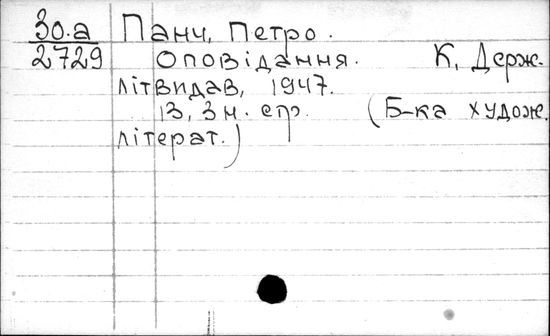 30.а Панч, Петро.
2729 Оповідання. К, Держ.
літвидав, 1947.
13, 3 н. стр. (Б-ка худож.
літерат.)